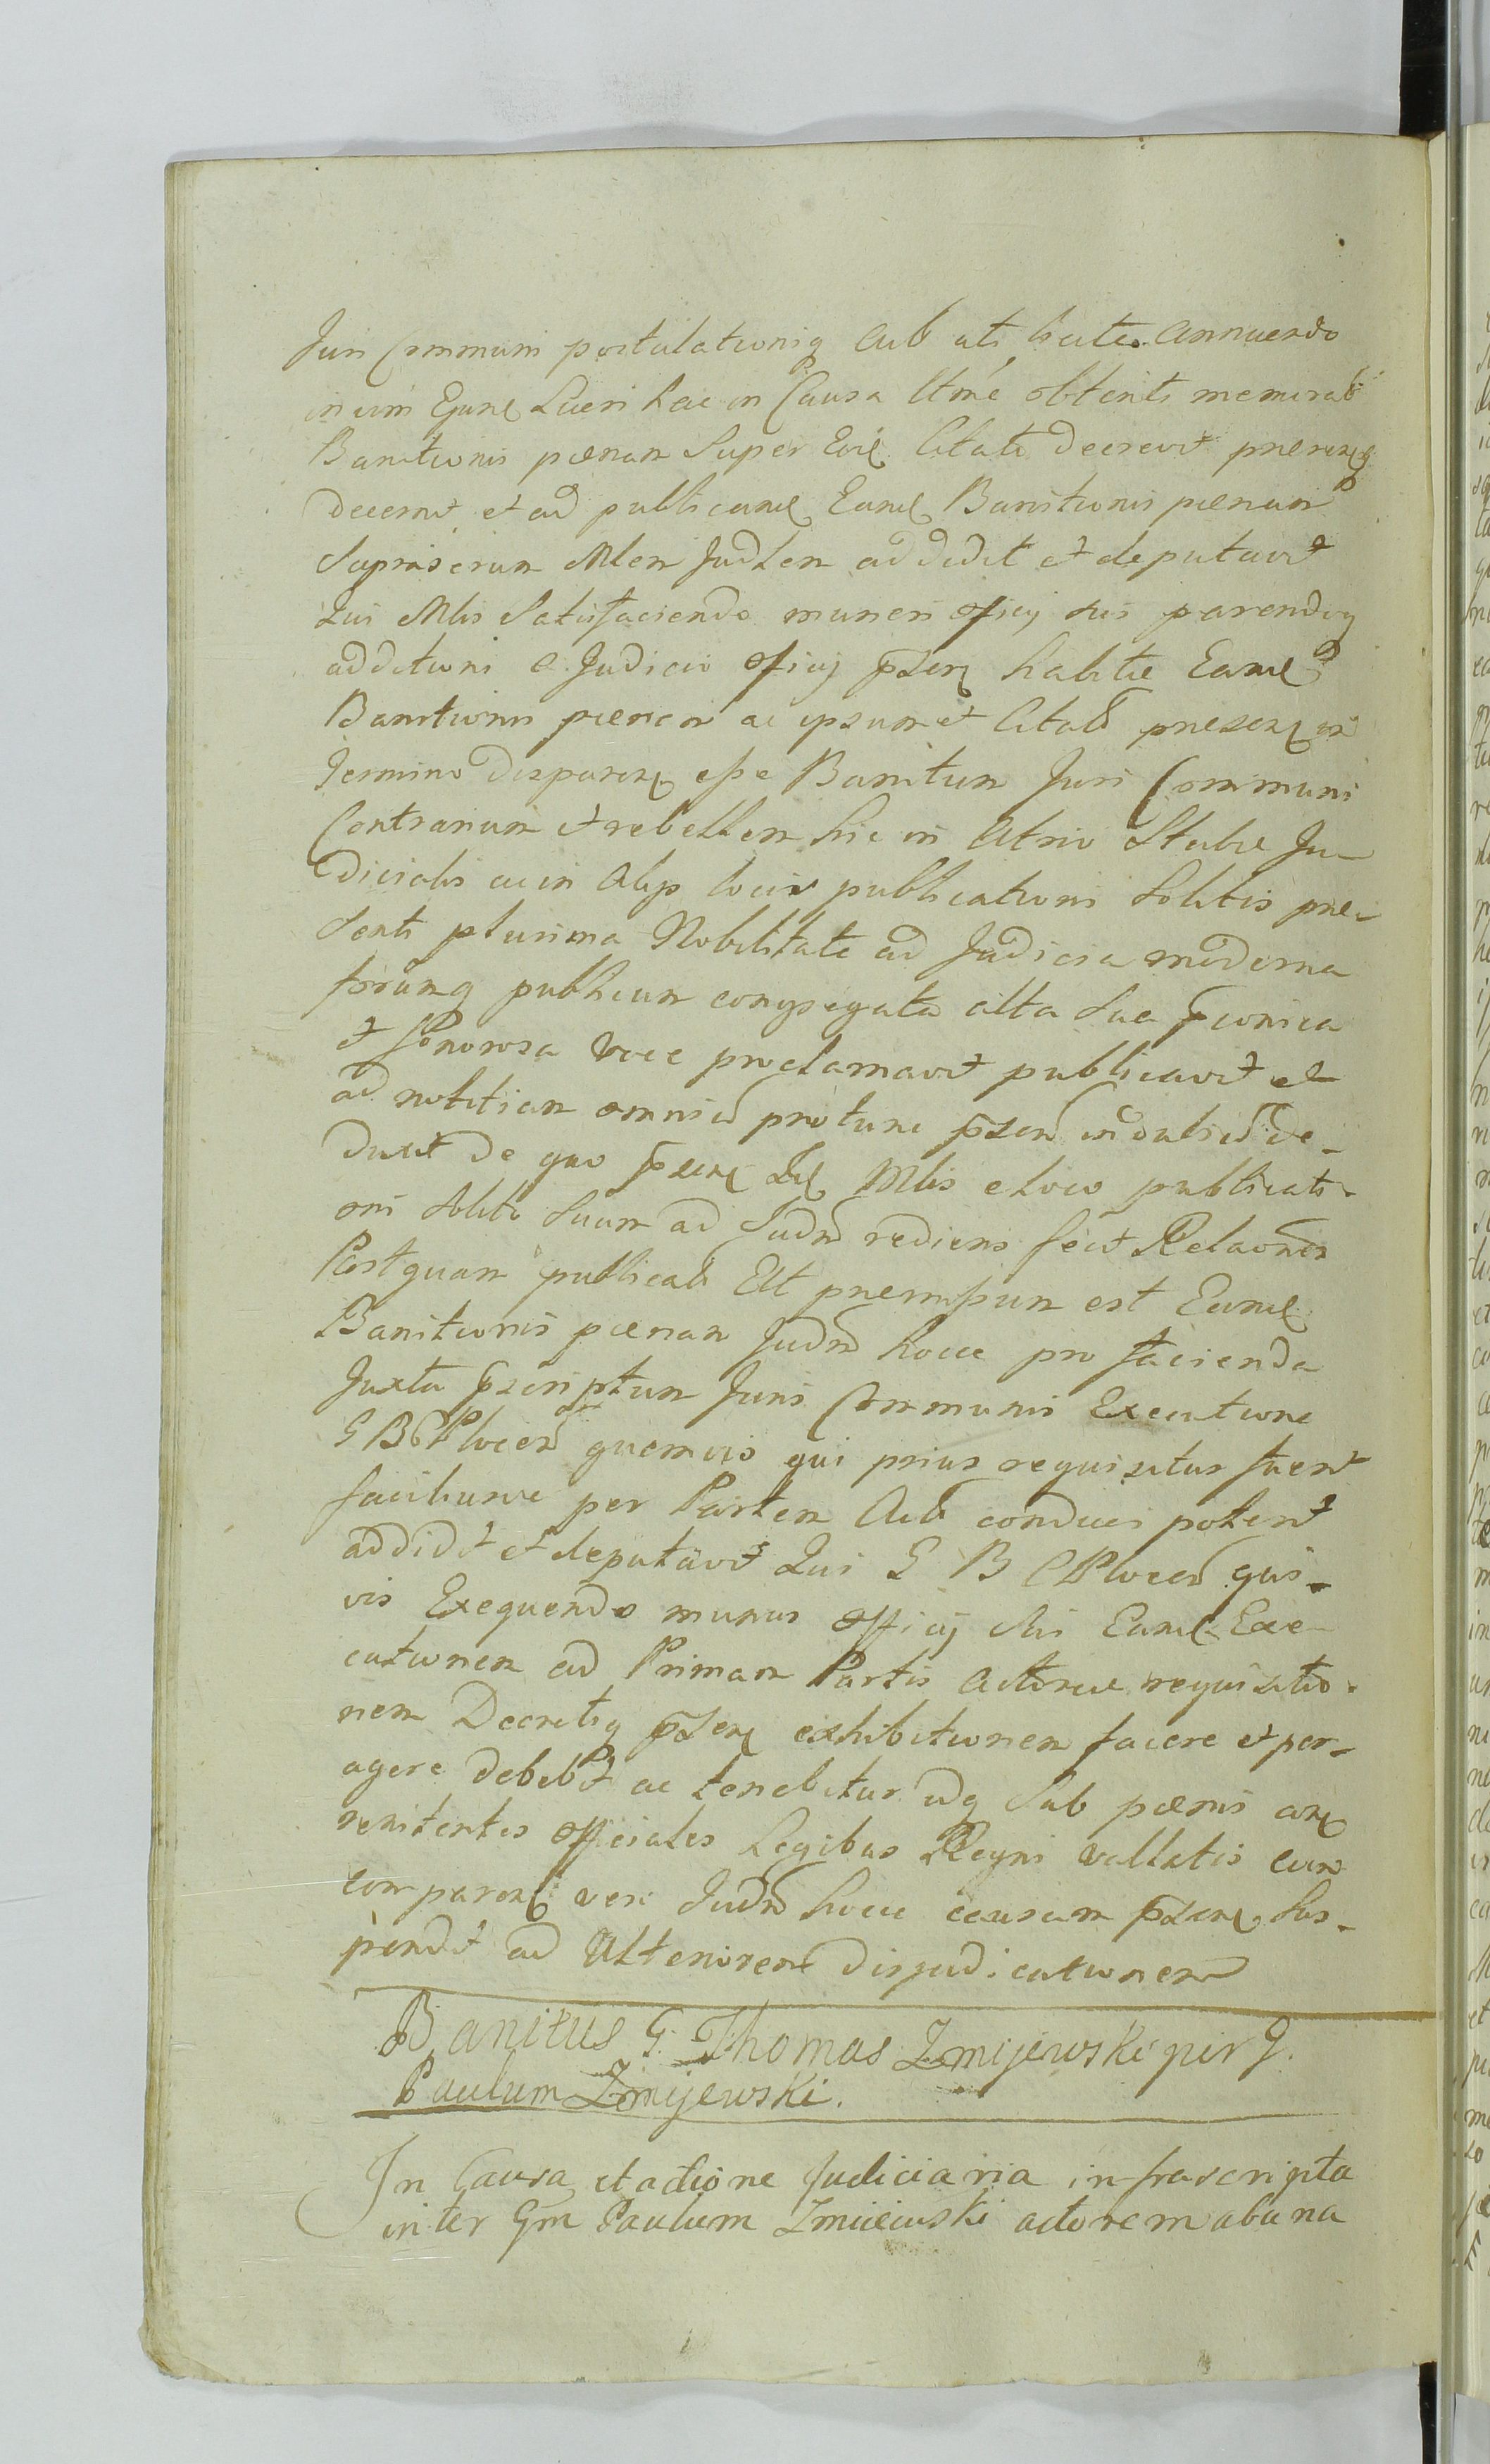 Juri Communi postulationiq Act uti licita Annuendo
in vim Ejund Lucri hac in Causa Ultme obtenti memorat
Banitionis pænam super Eod Citato decrevit
decernit et ad publicand Eand Banitionis pænam
suprascrium Mlem Judlem addidit et deputavit
Qui Mlis Satisfaciendo muneri officij sui parendoq
additioni e Judicio officij pser habitæ Eand
Banitionis pænam ac ipsumet Citatu in
Termino disparen esse Banitum Juri Communi
Contrarium et rebellem hic in Atrio Stubæ Ju-
dicialis ac in Alijs locis publicationi Solitis præ-
senti plurima Nobilitate ad Judicia moderna
forumq publicum congregata alta sua
et sonorosa voce proclamavit publicavit et
ad notitiam omniu protunc psen indubie de-
duxit de quo psens Id Mlis e loco publicati-
oni solito suam ad Judm rediens fecit Relaonem
Postquam publicata Ut præmissum est Eand
Banitionis pænam Judm hocce pro facienda
Juxta pscriptum Juris Communis Executione
G B C Plocen quemvis qui prius requisitus fuerit
faciliusve per Partem Act conduci poterit
addidit et deputavit Qui G B C Plocen quis-
vis Exequendo munus officij sui Eand Exe-
cutionem ad Primam Partis Actoreæ requisitio-
nem Decretiq psen exhibitionem facere et per-
agere debebit ac tenebitur idq sub pænis con
renitentes officiales Legibus Regni vallatis cum
comparen vero Judm hocce causam psen sus-
pendit ad Ulteriorem disjudicationem
Banitus G. Thomas Zmijewski per G.
Paulum Zmijewski.
In Causa et actione Judiciaria infrascripta
inter Gm Paulum Zmiiewski actorem ab una